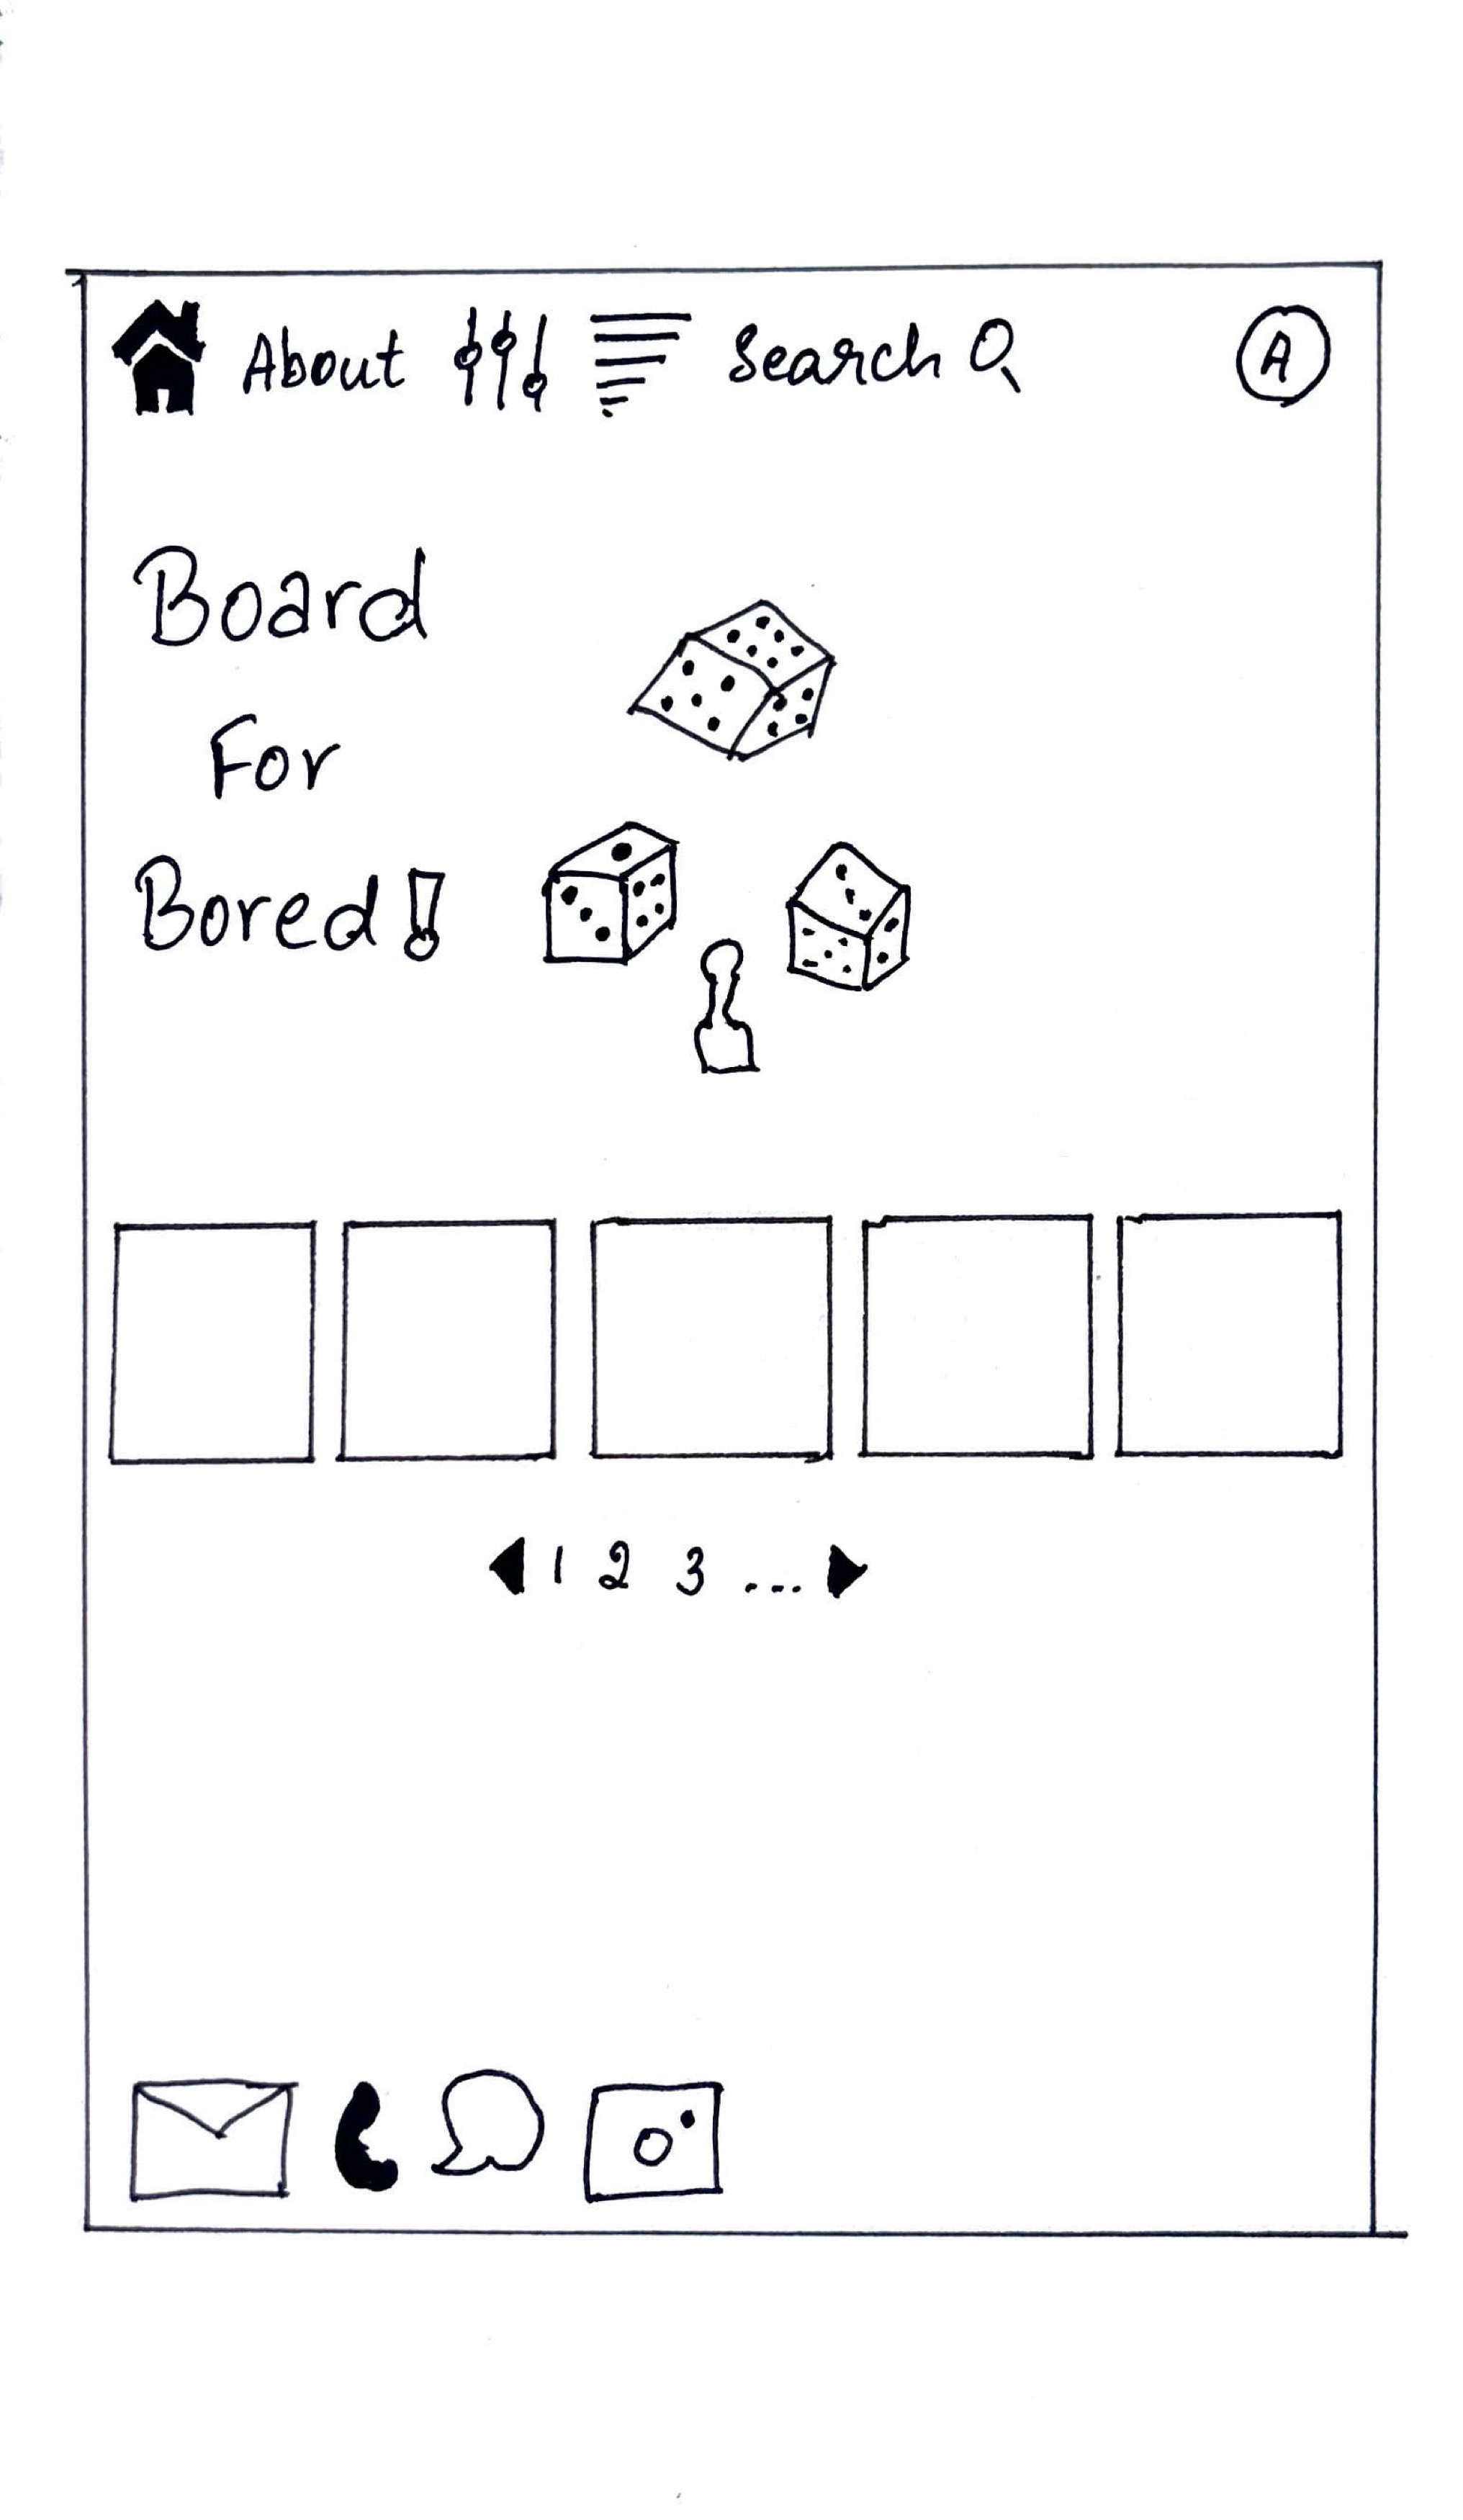 About Search A
Board
For
Bored!
1 2 3 ...